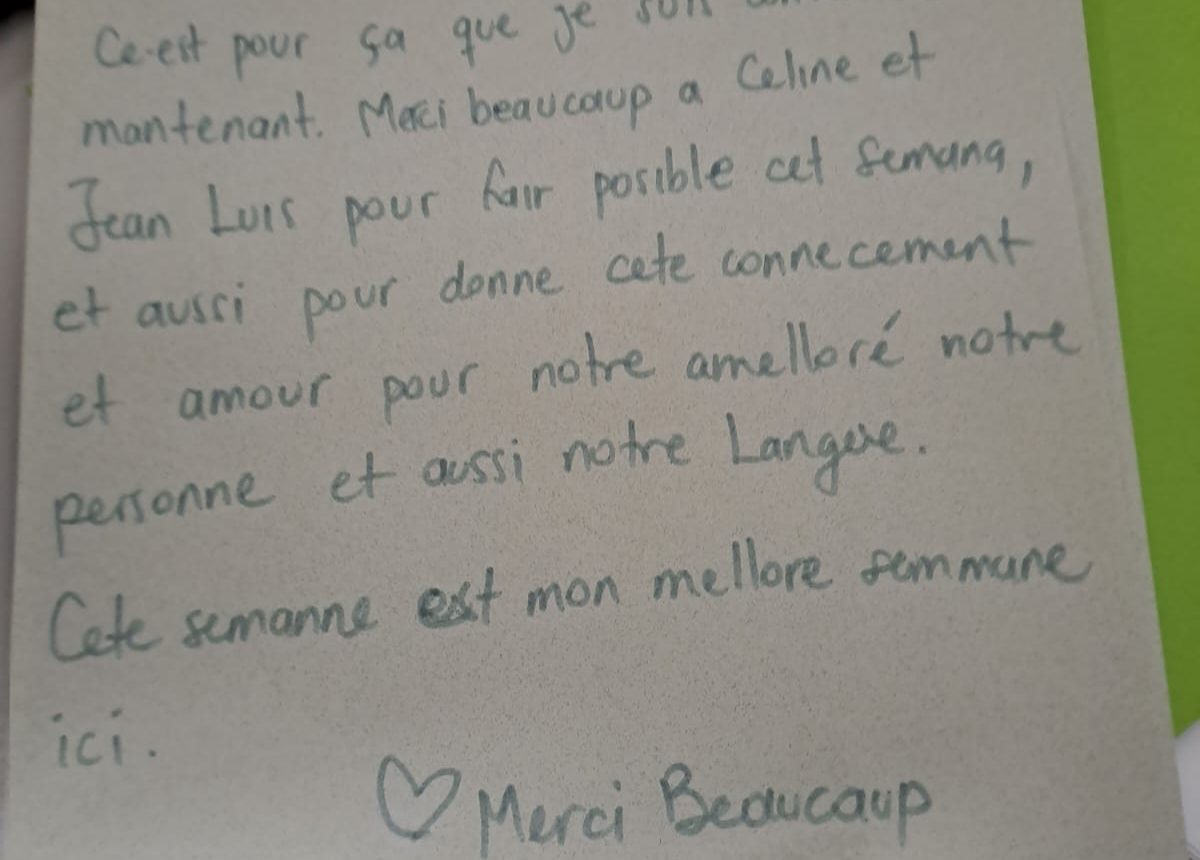 Ce-est pour ça que je son
mantenant. Merci beaucaup a Celine et
Jean Luis pour fair posible cet semana,
et aussi pour donne cete connecement
et amour pour notre amelloré notre
personne et aussi notre Langue.
Cete semanne est mon mellore semmane
ici.
♡ Merci Beaucaup